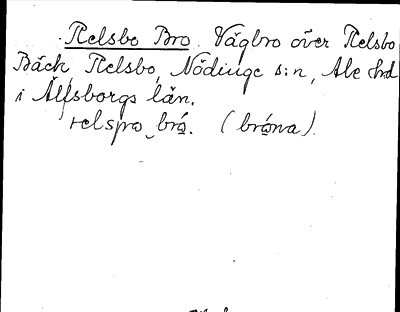 Relsbo Bro. Vägbro över Relsbo
Bäck, Relsbo, Nödinge s:n, Ale hd
i Älfsborgs län.
relspω brω̨. (brω̨na).